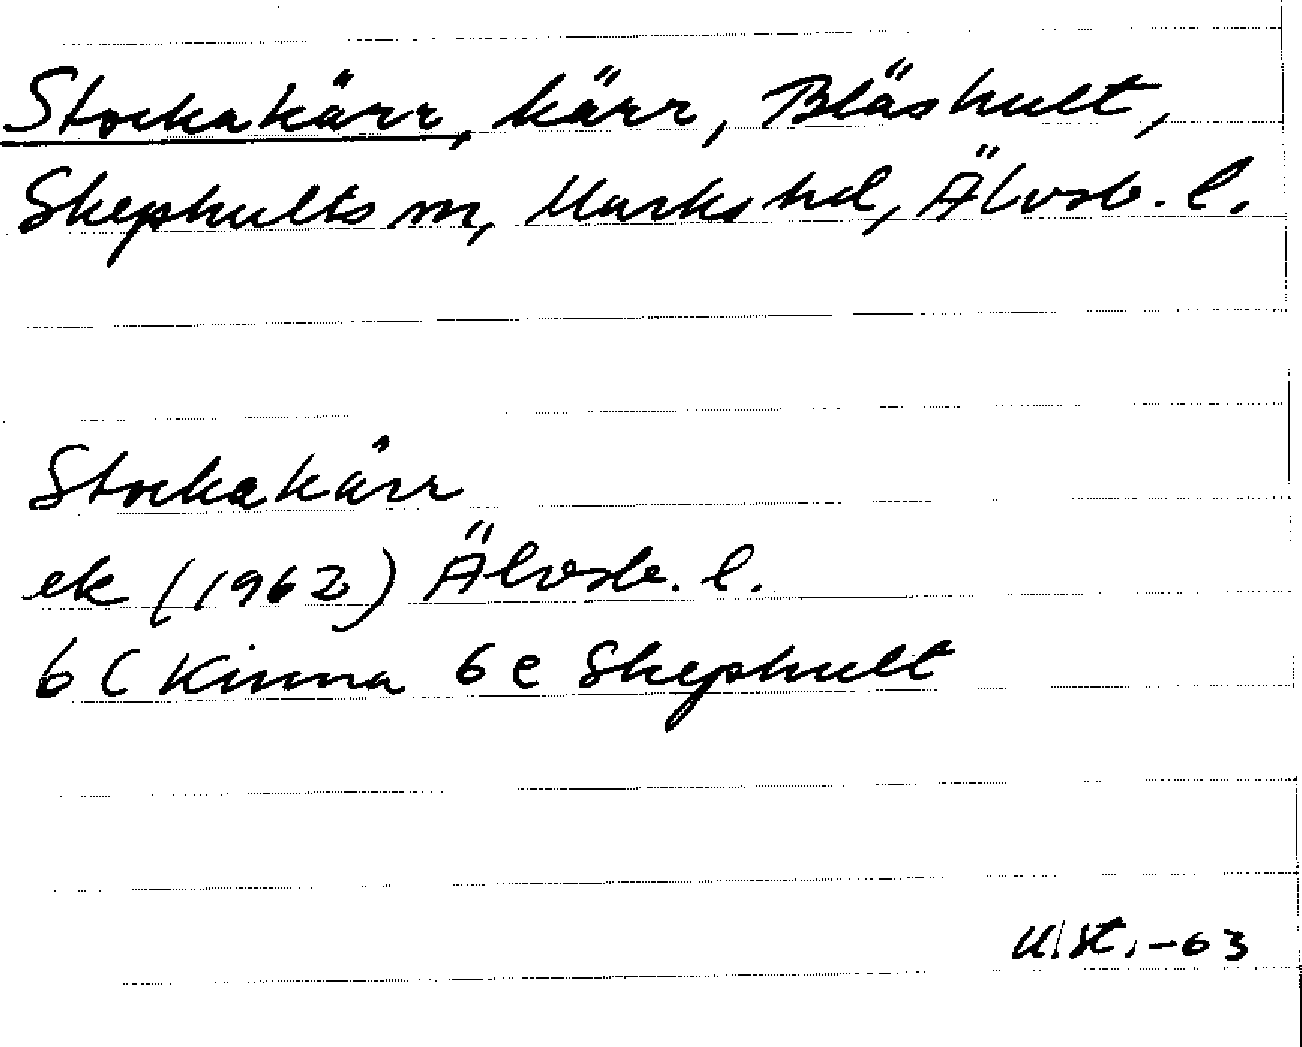 Stockakärr, kärr, Bläshult,
Skephults sn, Marks hd, Älvsb. l.
Stockakärr
ek (1962) Älvsb. l.
6 C Kinna 6 e Skephult
U.St. -63